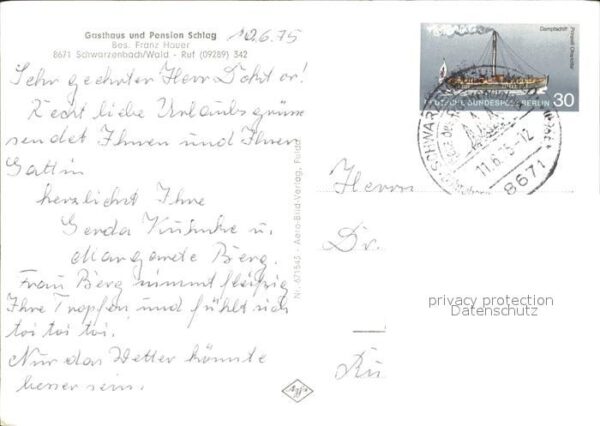 Gasthaus und Pension Schlag
Bes. Franz Hauer
8671 Schwarzenbach/Wald - Ruf (09289) 342
10.6.75
Sehr geehrter Herr Doktor!
Recht liebe Urlaubsgrüsse
sendet Ihnen und Ihrer
Gattin
herzlichst Ihre
Gerda u.
Margarete Berg.
Frau Berg nimmt fleißig
Ihre Tropfen und fühlt sich
toi toi toi.
Nur das Wetter könnte
besser sein.
Nr. 671545 - Aero-Bild-Verlag, Fulda
Agfa
Dampfschiff Prinzeß Charlotte
DEUTSCHE BUNDESPOST BERLIN 30
11.6.75-12
8671
Herrn
Dr.
privacy protection
Datenschutz